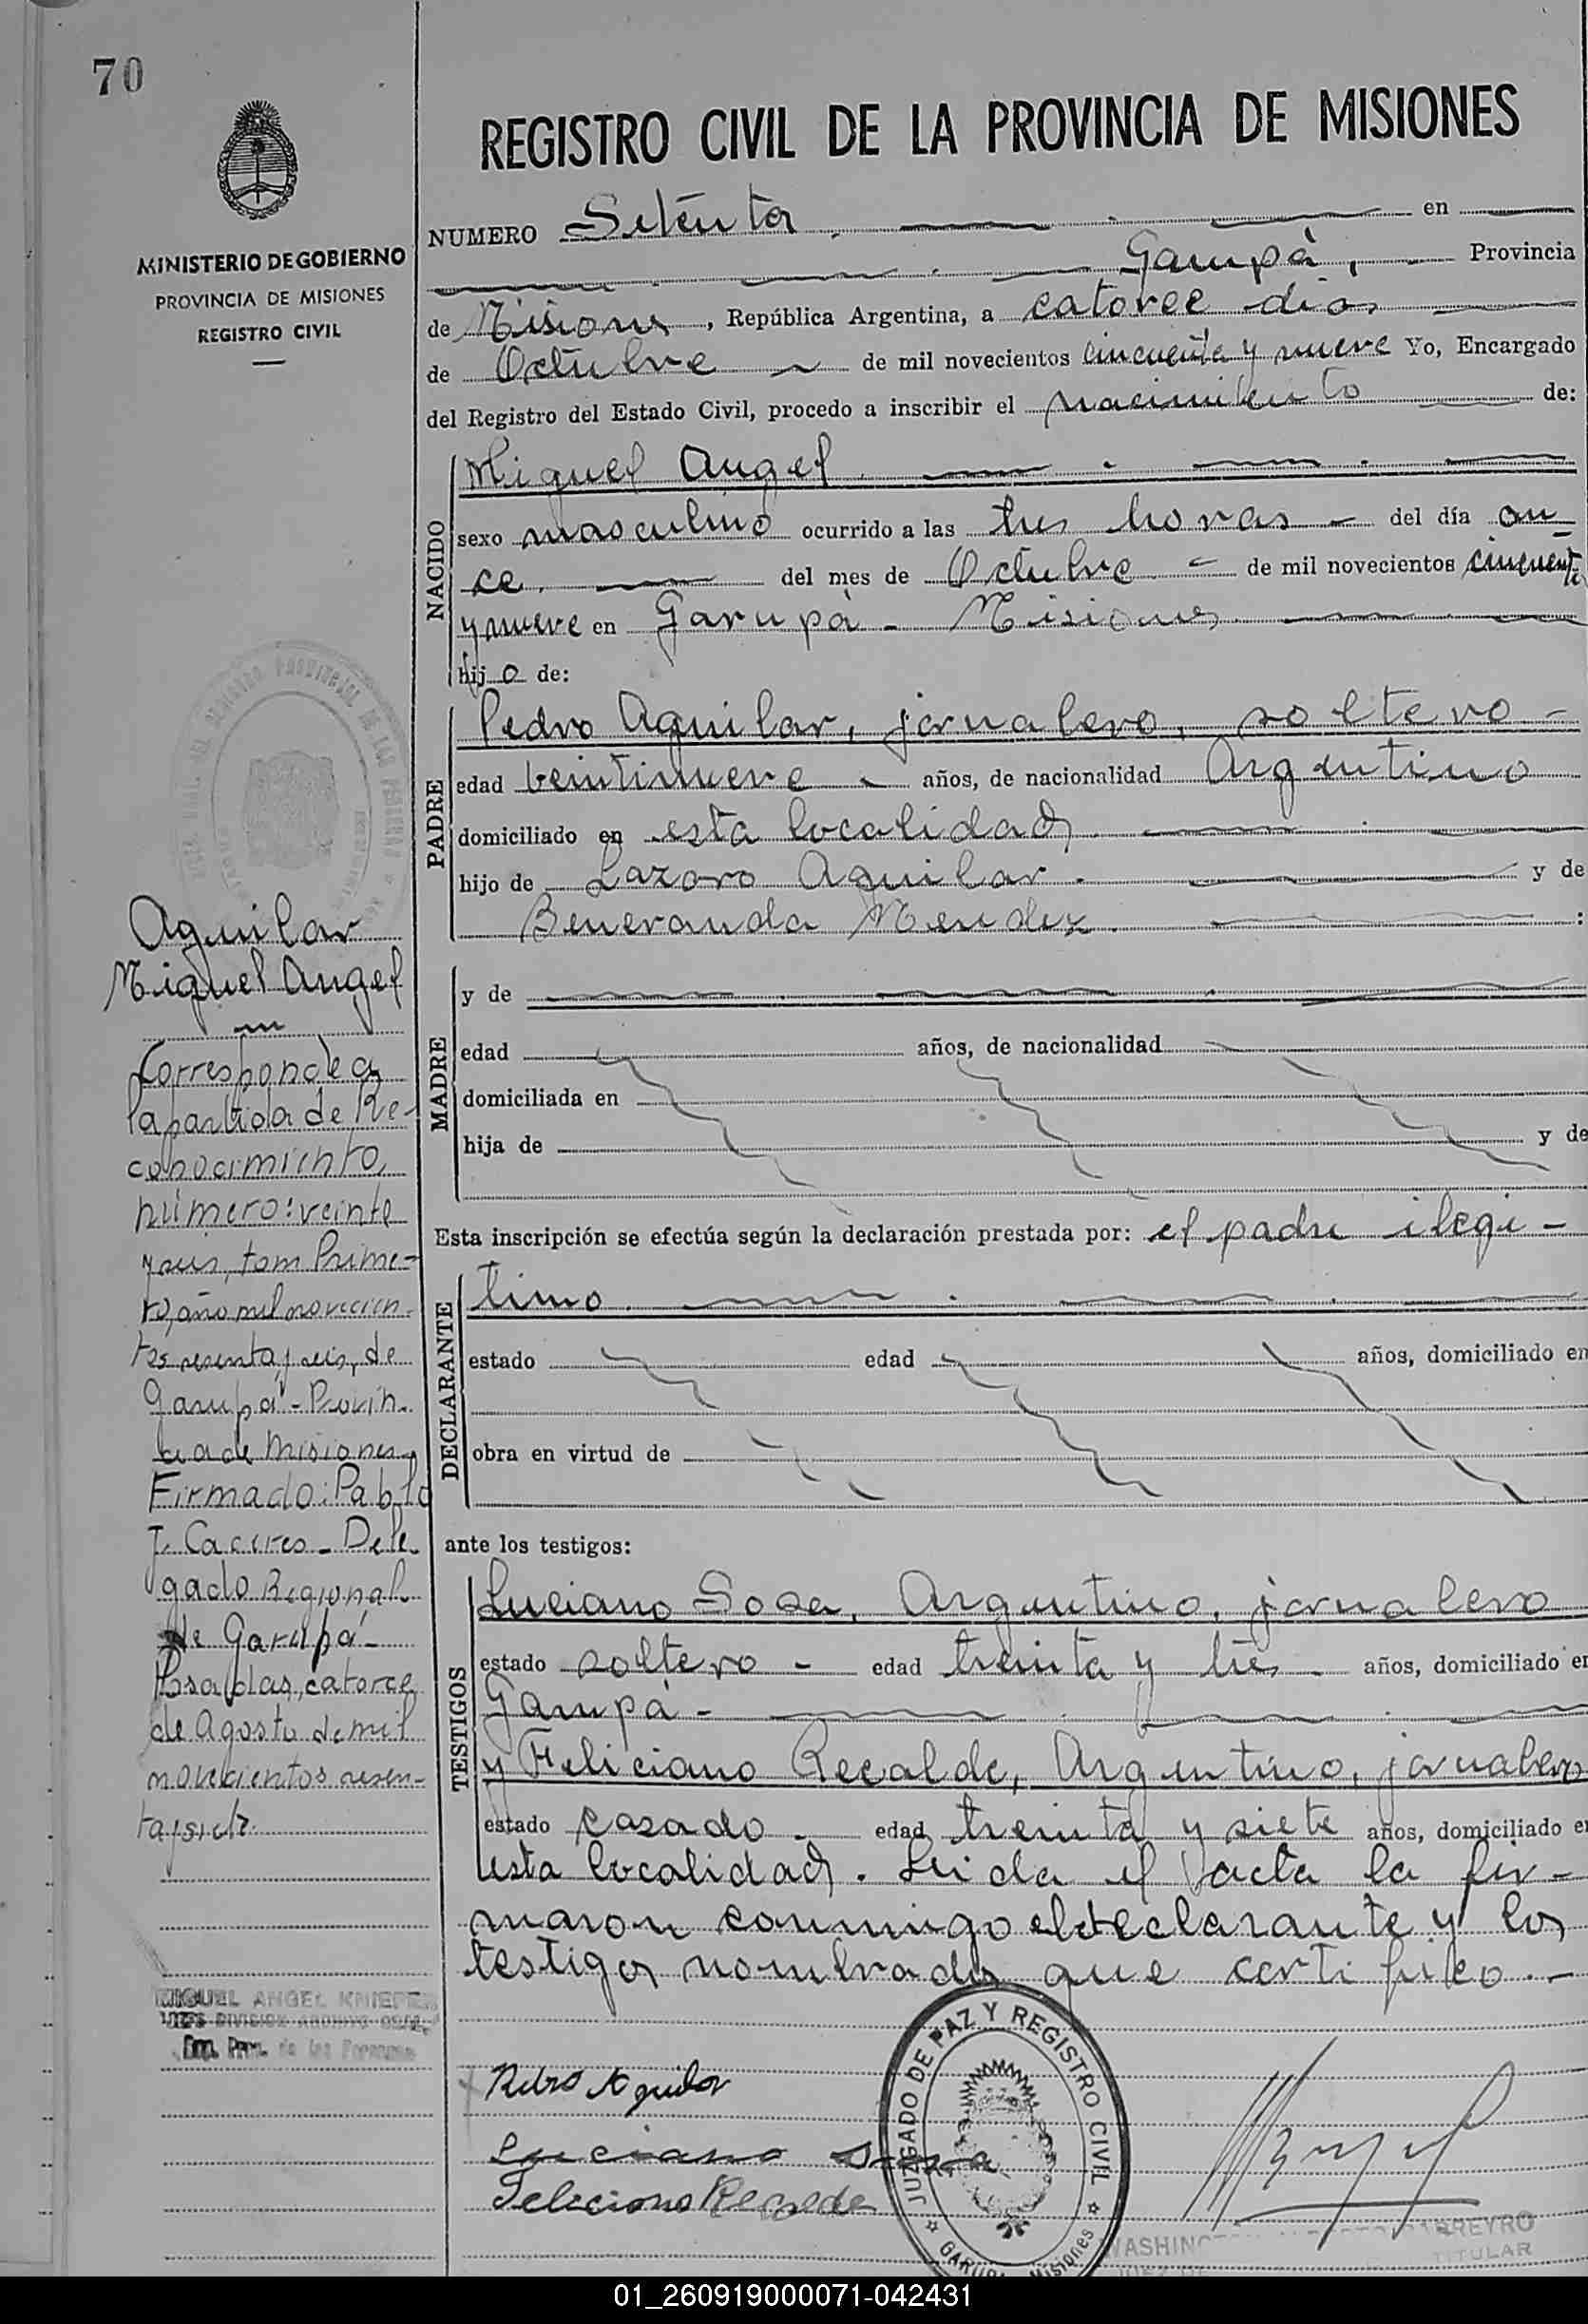 70
MINISTERIO DE GOBIERNO
PROVINCIA DE MISIONES
REGISTRO CIVIL
REGISTRO CIVIL DE LA PROVINCIA DE MISIONES
NUMERO Setenta en
Garupà, Provincia
de Misiones, República Argentina, a catorce dias
de Octubre de mil novecientos cincuenta y nueve Yo, Encargado
del Registro del Estado Civil, procedo a inscribir el nacimiento de:
NACIDO
Miguel Angel
sexo masculino ocurrido a las tres horas - del día on
ce. del mes de Octubre - de mil novecientos cincuenta
y nueve en Garupà - Misiones
hijo de:
PADRE
Pedro Aguilar, jornalero, soltero -
edad beintinueve - años, de nacionalidad Argentino
domiciliado en esta localidad
hijo de Lazaro Aguilar - y de
Beneranda Mendez :
MADRE
y de
edad años, de nacionalidad
domiciliada en
hija de y de
Esta inscripción se efectúa según la declaración prestada por: el padre ilegi -
DECLARANTE
timo
estado edad años, domiciliado en
obra en virtud de
ante los testigos:
TESTIGOS
Luciano Sosa, Argentino, jornalero
estado soltero - edad treinta y tres - años, domiciliado en
Garupà -
y Feliciano Recalde, Argentino, jornalero
estado casado - edad treinta y siete años, domiciliado en
esta localidad. Leida el acta la fir -
maron conmigo el declarante y los
testigos nombrados que certifico. -
Pedro Aguilar
Luciano Sosa
Feliciano Recalde
JUZGADO DE PAZ Y REGISTRO CIVIL
GARUPA Misiones
TITULAR
Aguilar
Miguel Angel
Corresponde a
la partida de Re-
conocimiento
número: veinte
y seis, tom Prime-
ro, año mil novecien-
tos sesenta y seis, de
Garupá - Provin-
cia de Misiones
Firmado: Pablo
J. Caceres - Dele-
gado Regional
de Garupá -
Posadas, catorce
de Agosto de mil
novecientos sesen-
ta y siete.
MIGUEL ANGEL KNIEPER
JEFE DIVISION ARCHIVO GRAL.
Dir. Prov. de las Personas
01_260919000071-042431